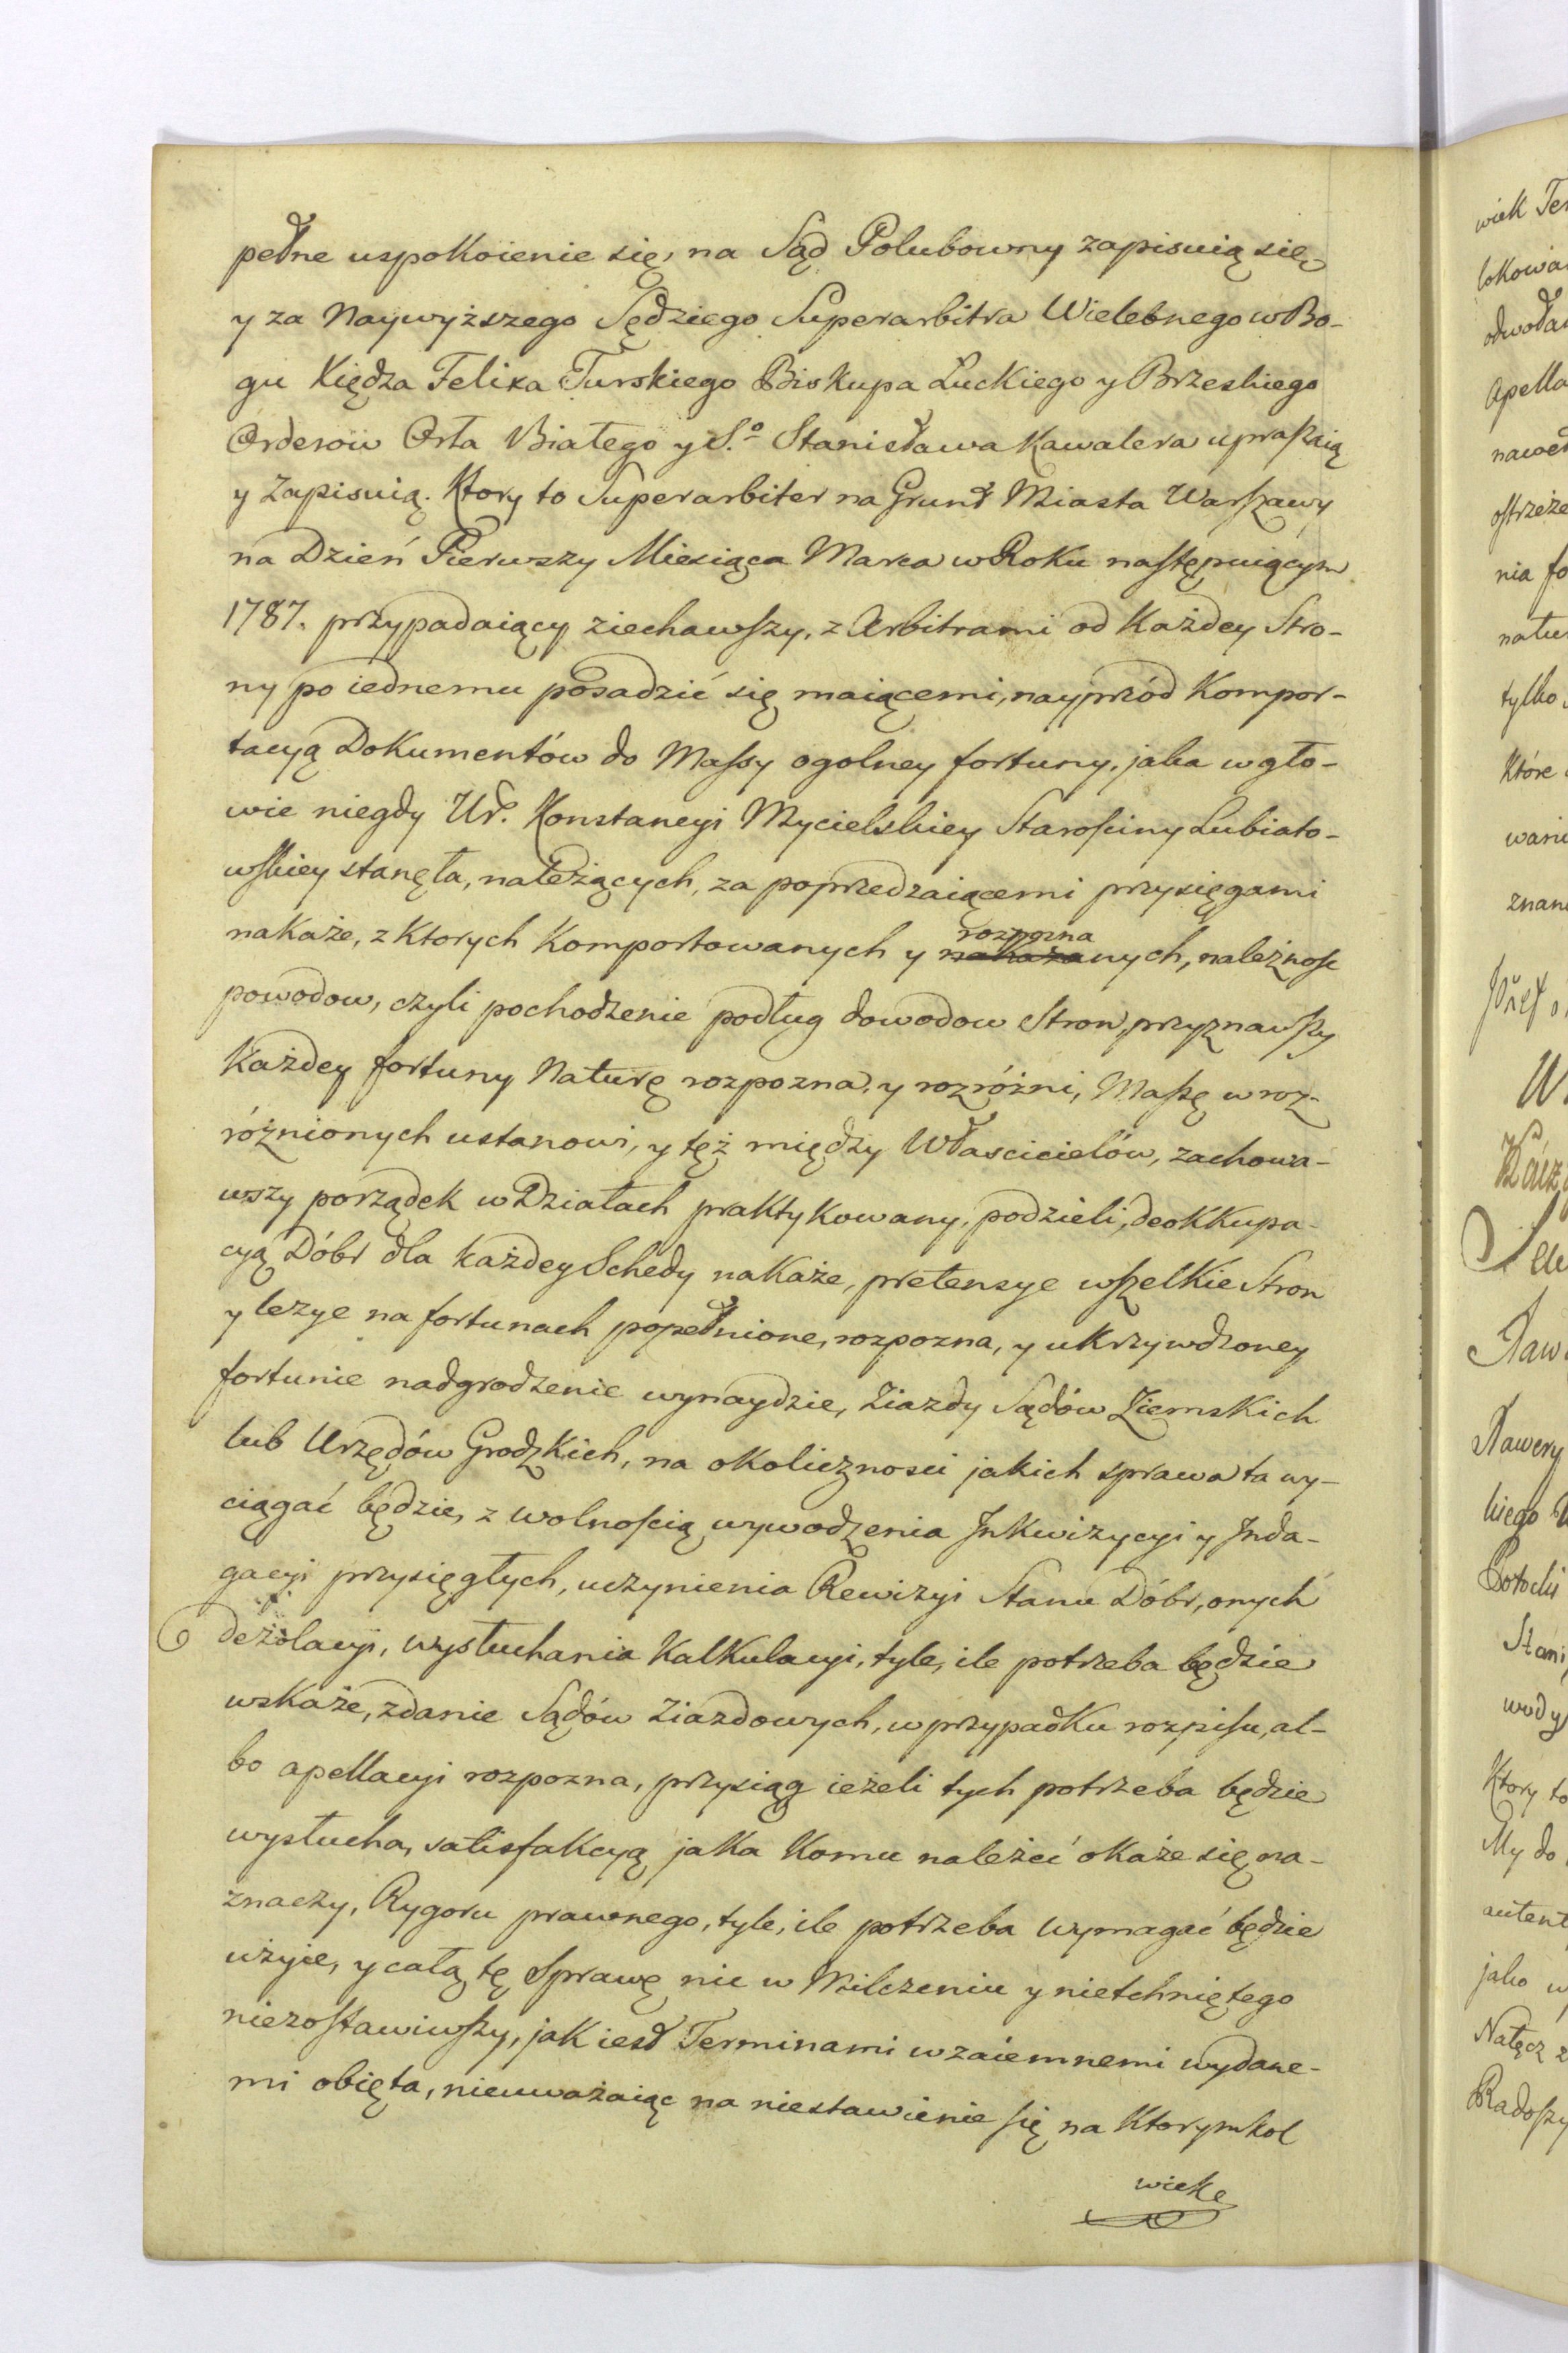 pełne uspokoienie się, na Sąd Polubowny zapisuią się,
y za Naywyższego Sędziego Superarbitra Wielebnego w Bo-
gu Xiędza Felixa Turskiego Biskupa Łuckiego y Brzeskiego
Orderow Orła Białego y S.º Stanisława Kawalera upraszaią
y Zapisuią. Ktory to Superarbiter na Grunt Miasta Warszawy
na Dzień Pierwszy Miesiąca Marca w Roku następuiącym
1787. przypadaiący ziechawszy, z Arbitrami od Każdey Stro-
ny po iednemu posadzić się maiącemi, nayprzód Kompor-
tacyą Dokumentów do Massy ogolney fortuny, jaka w gło-
wie niegdy Ur. Konstancyi Mycielskiey Starościny Lubiato-
wskiey stanęła, należących, za poprzedzaiącemi przysięgami
nakaże, z Ktorych Komportowanych y nakazanych, należnosc
rozpozna
powodow, czyli pochodzenie podług dowodow Stron, przyznawszy
Każdey fortuny Naturę rozpozna, y rozróżni, Massę w roz-
różnionych ustanowi, y też między Włascicielów, zachowa-
wszy porządek w Działach praktykowany, podzieli, deokkupa-
cyą Dóbr dla każdey Schedy nakaże, pretensye wszelkie Stron
y lezye na fortunach popełnione, rozpozna, y ukrzywdzoney
fortunie nadgrodzenie wynaydzie, Ziazdy Sądów Ziemskich
lub Urzędów Grodzkich, na okolicznosci jakich sprawa ta wy-
ciągać będzie, z wolnością wywodzenia Inkwizycyi y Inda-
gacyi przysięgłych, uczynienia Rewizyi Stanu Dóbr, onych
dezolacyi, wysłuchania Kalkulacyi, tyle, ile potrzeba będzie
wskaże, zdanie Sądów Ziazdowych, w przypadku rozpisu, al-
bo apellacyi rozpozna, przysiąg ieżeli tych potrzeba będzie
wysłucha, satisfakcyą jaka Komu należeć okaże się na-
znaczy, Rygoru prawnego, tyle, ile potrzeba wymagać będzie
użyie, y całą tę Sprawę nic w Milczeniu y nietchniętego
niezostawiwszy, jak iest Terminami wzaiemnemi wydane-
mi obięta, nieuważaiąc na niestawienie się na Ktorymkol
wiek
wiek Ter
lokowa
odwoła
Apella
ostrzeże
nia fo
natu
tylko
Które
wani
znan
Nawery
kiego
Potocki
Stani
wody
Ktory to
My do
autent
jako w
Nałęcz z
Radoszy